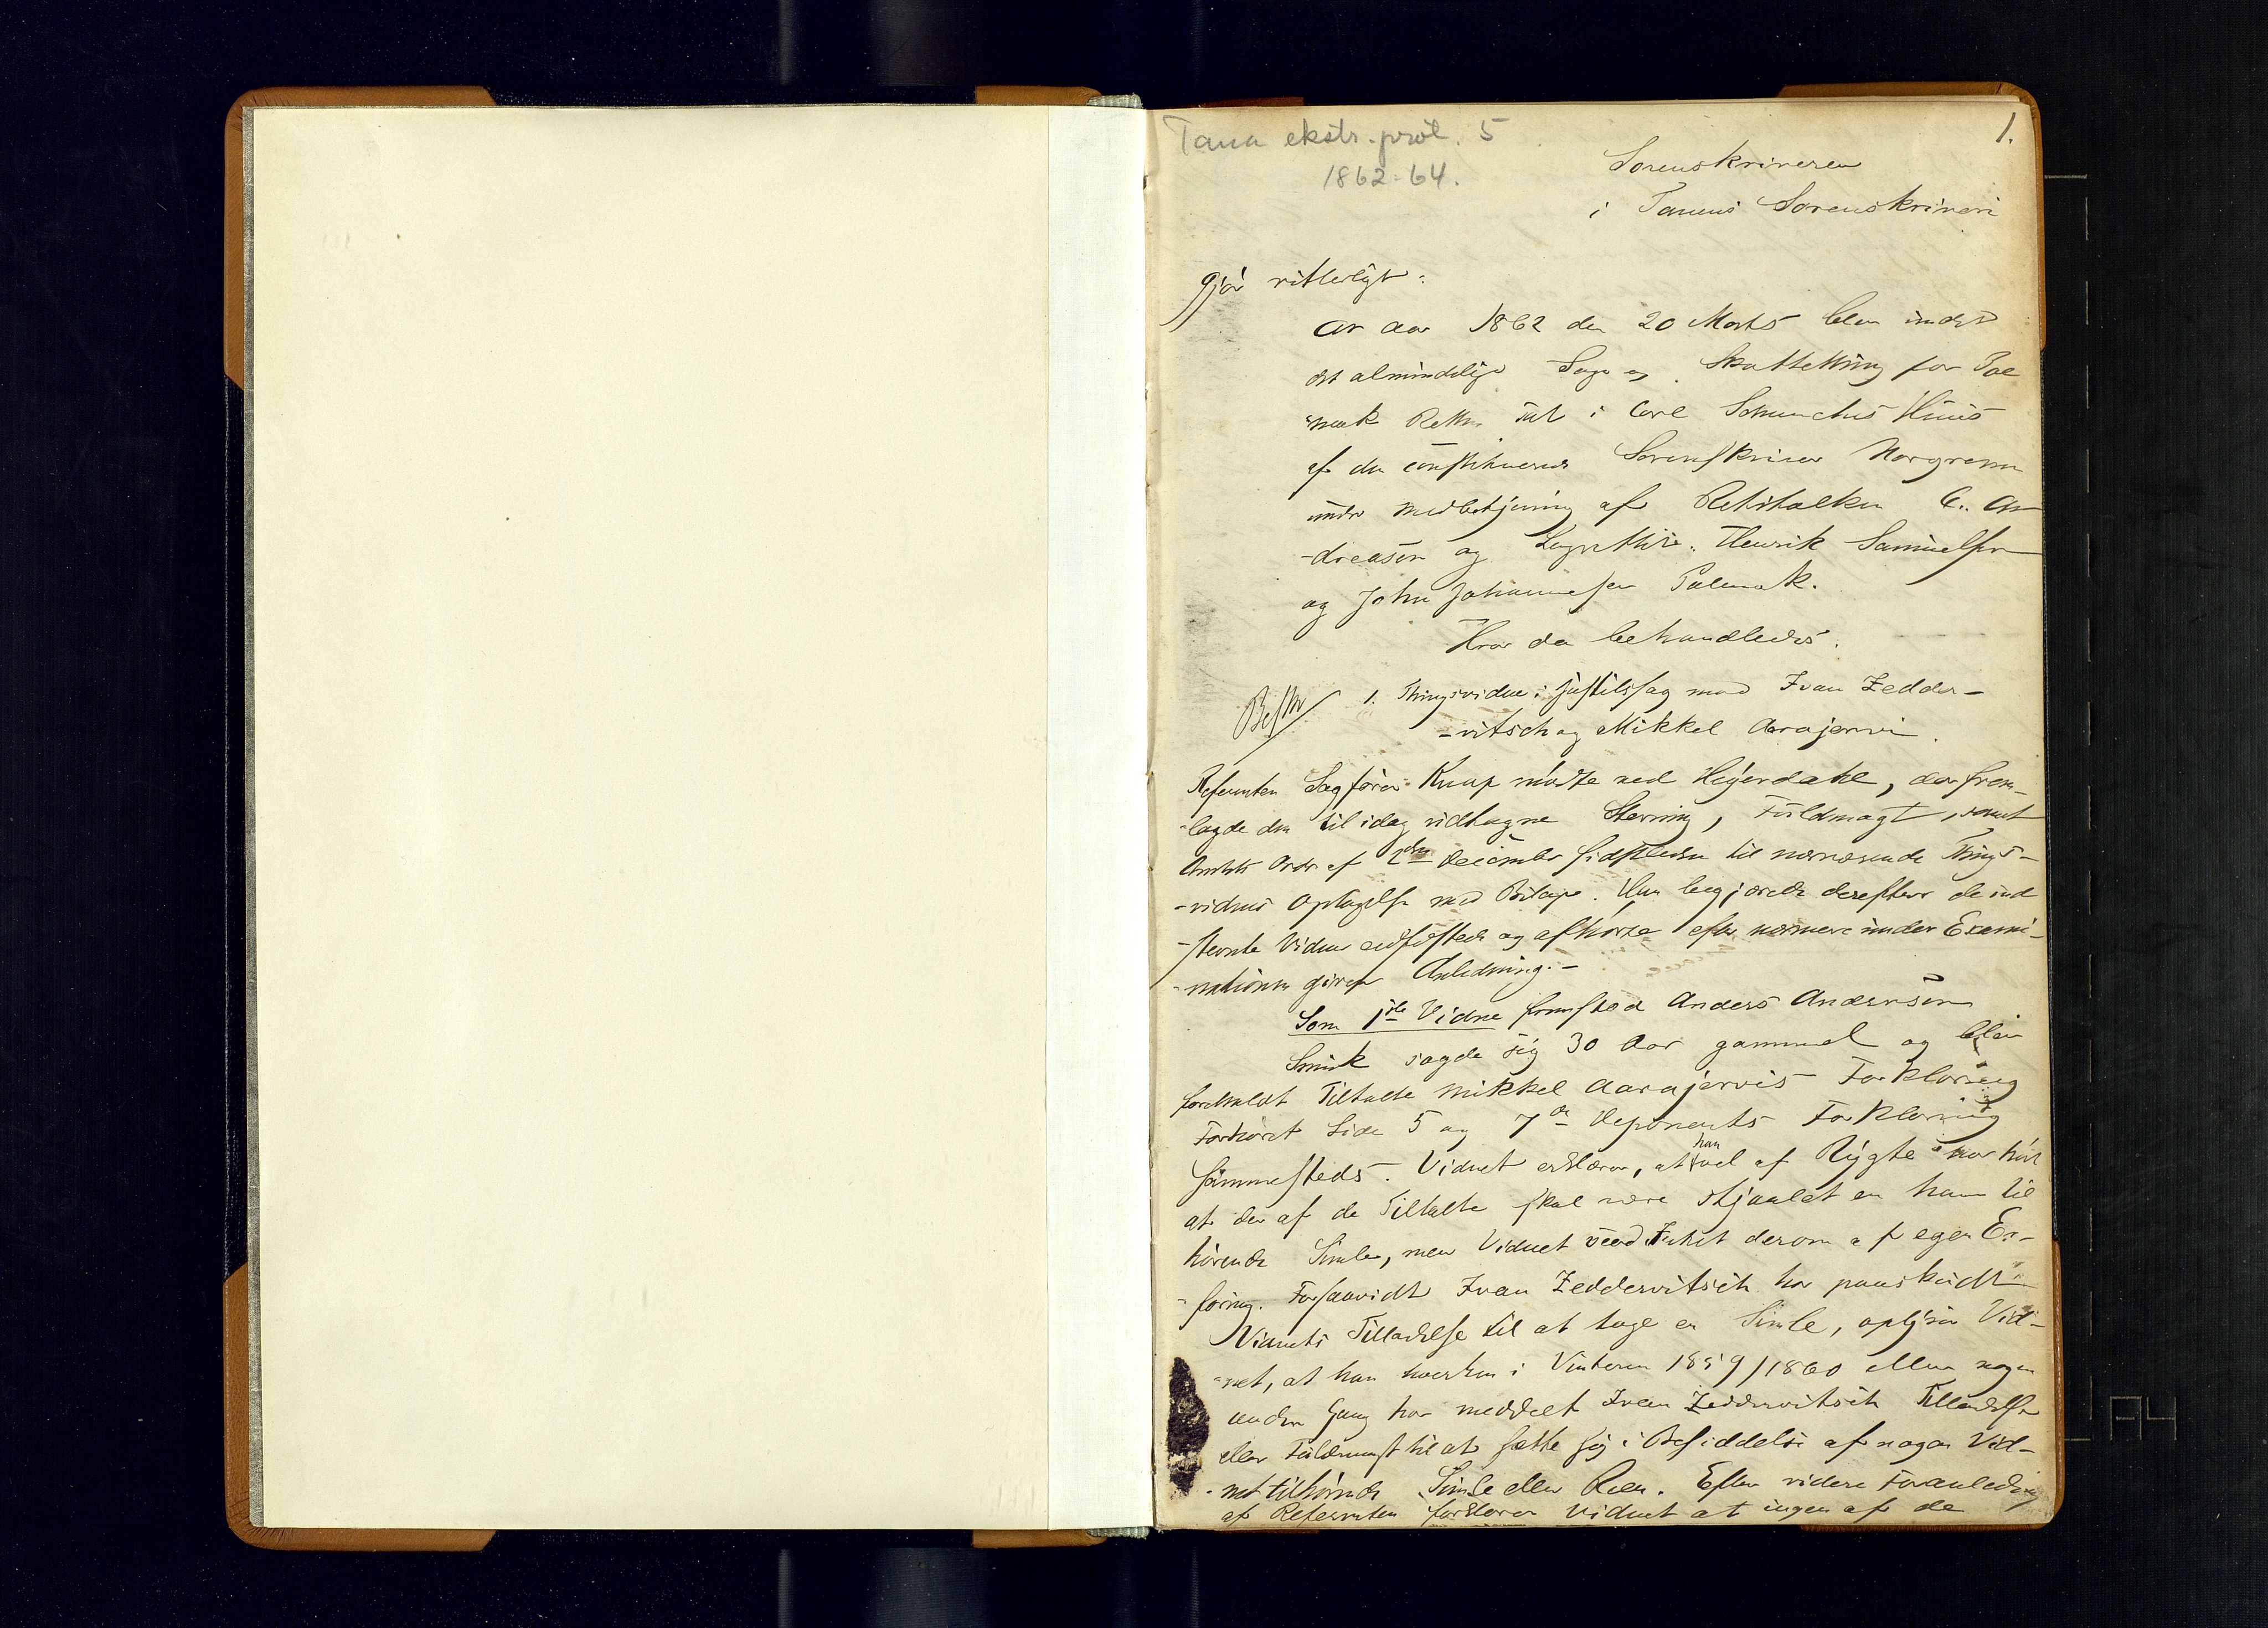 Tana ekstr. prot. 5
1862-64.
1.
Sorenskriveren
i Tanens Sorenskriveri
gjør vitterligt:
Ar aar 1862 den 20 Marts blev indst
det almindelige Sage og Skattething for Pol
mak Retten sat i Carl Schanches Huus
af den constituerede Sorenskriver Norgrenn
under Medbetjening af Retstolken C. An
-dreasen og Lagrettire: Henrik Samuelsen
og John Johannesen Polmak.
Hvor da behandledes:
Besk 1. Thingsvidne i Justitssag mod Ivan Zedder-
-vitsch og Mikkel Aarajervi.
Referenten Sagfører Knap mødte ved Heyerdahl, der frem-
-lagde den til idag udtagne Stevning, Fuldmagt, samt
Amtets Ordre af 2den December sidstleden til nærværende Things-
-vidnes Optagelse med Bilage. Han begjærede derefter de ind
-stevnte Vidner edfæstede og afhørte efter nærmere under Exami-
-nationen given Anledning.-
Som 1ste Vidne fremstod Anders Andersen
Smuk sagde sig 30 Aar gammel og blev
foreholdt Tiltalte Mikkel Aarajervis Forklaring
Forhøret Side 5 og 7de Deponents Forklaring
sammesteds. Vidnet erklærer, at han vel af Rygte har hørt
at der af de Tiltalte skal være stjaalet en ham til
hørende Simle, men Vidnet veed Intet derom af egen Er-
-faring. Forsaavidt Ivan Zeddervitsch har paaskudt
Vidnets Tilladelse til at tage en Simle, oplyser Vid-
-net, at han hverken i Vinteren 1859/1860 eller nogen
anden Gang har meddelt Ivan Zeddervitsch Tilladelse
eller Fuldmagt til at sætte sig i Besiddelse af nogen Vid-
-net tilhørende Simle eller Reen. Efter videre Foranledning
af Referenten forklarer Vidnet at ingen af de